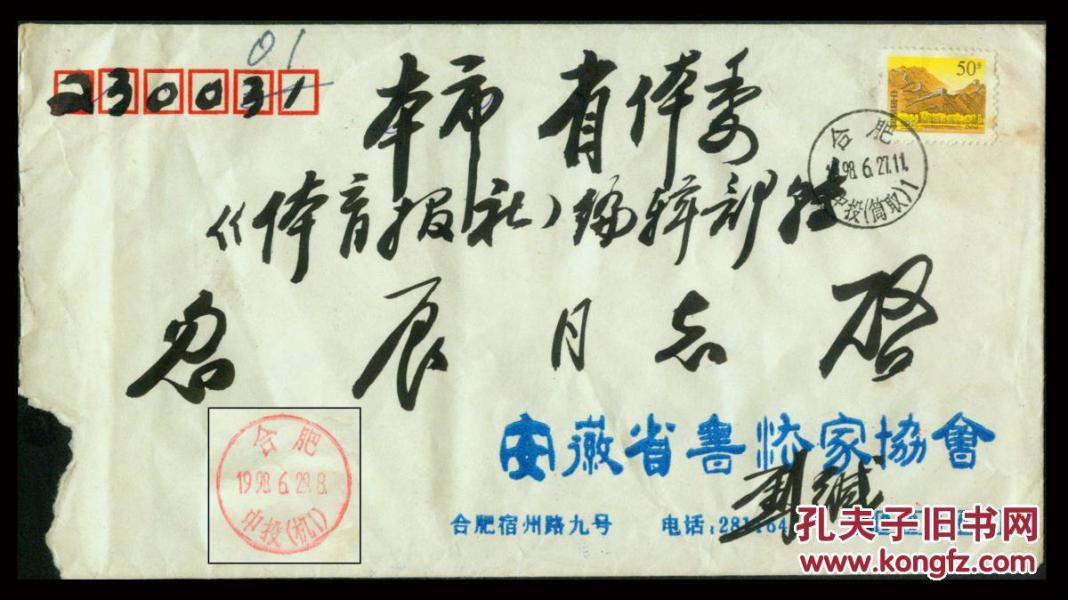 01
230031
50分
本市 省体委
合肥
1998.6.27.11.
中投(筒取)1
《体育报社》编辑部转
辰同志 启
合肥
1998.6.29.8.
中投(机1)
安徽省書法家協會
刘缄
合肥宿州路九号 电话:281
孔夫子旧书网
www.kongfz.com